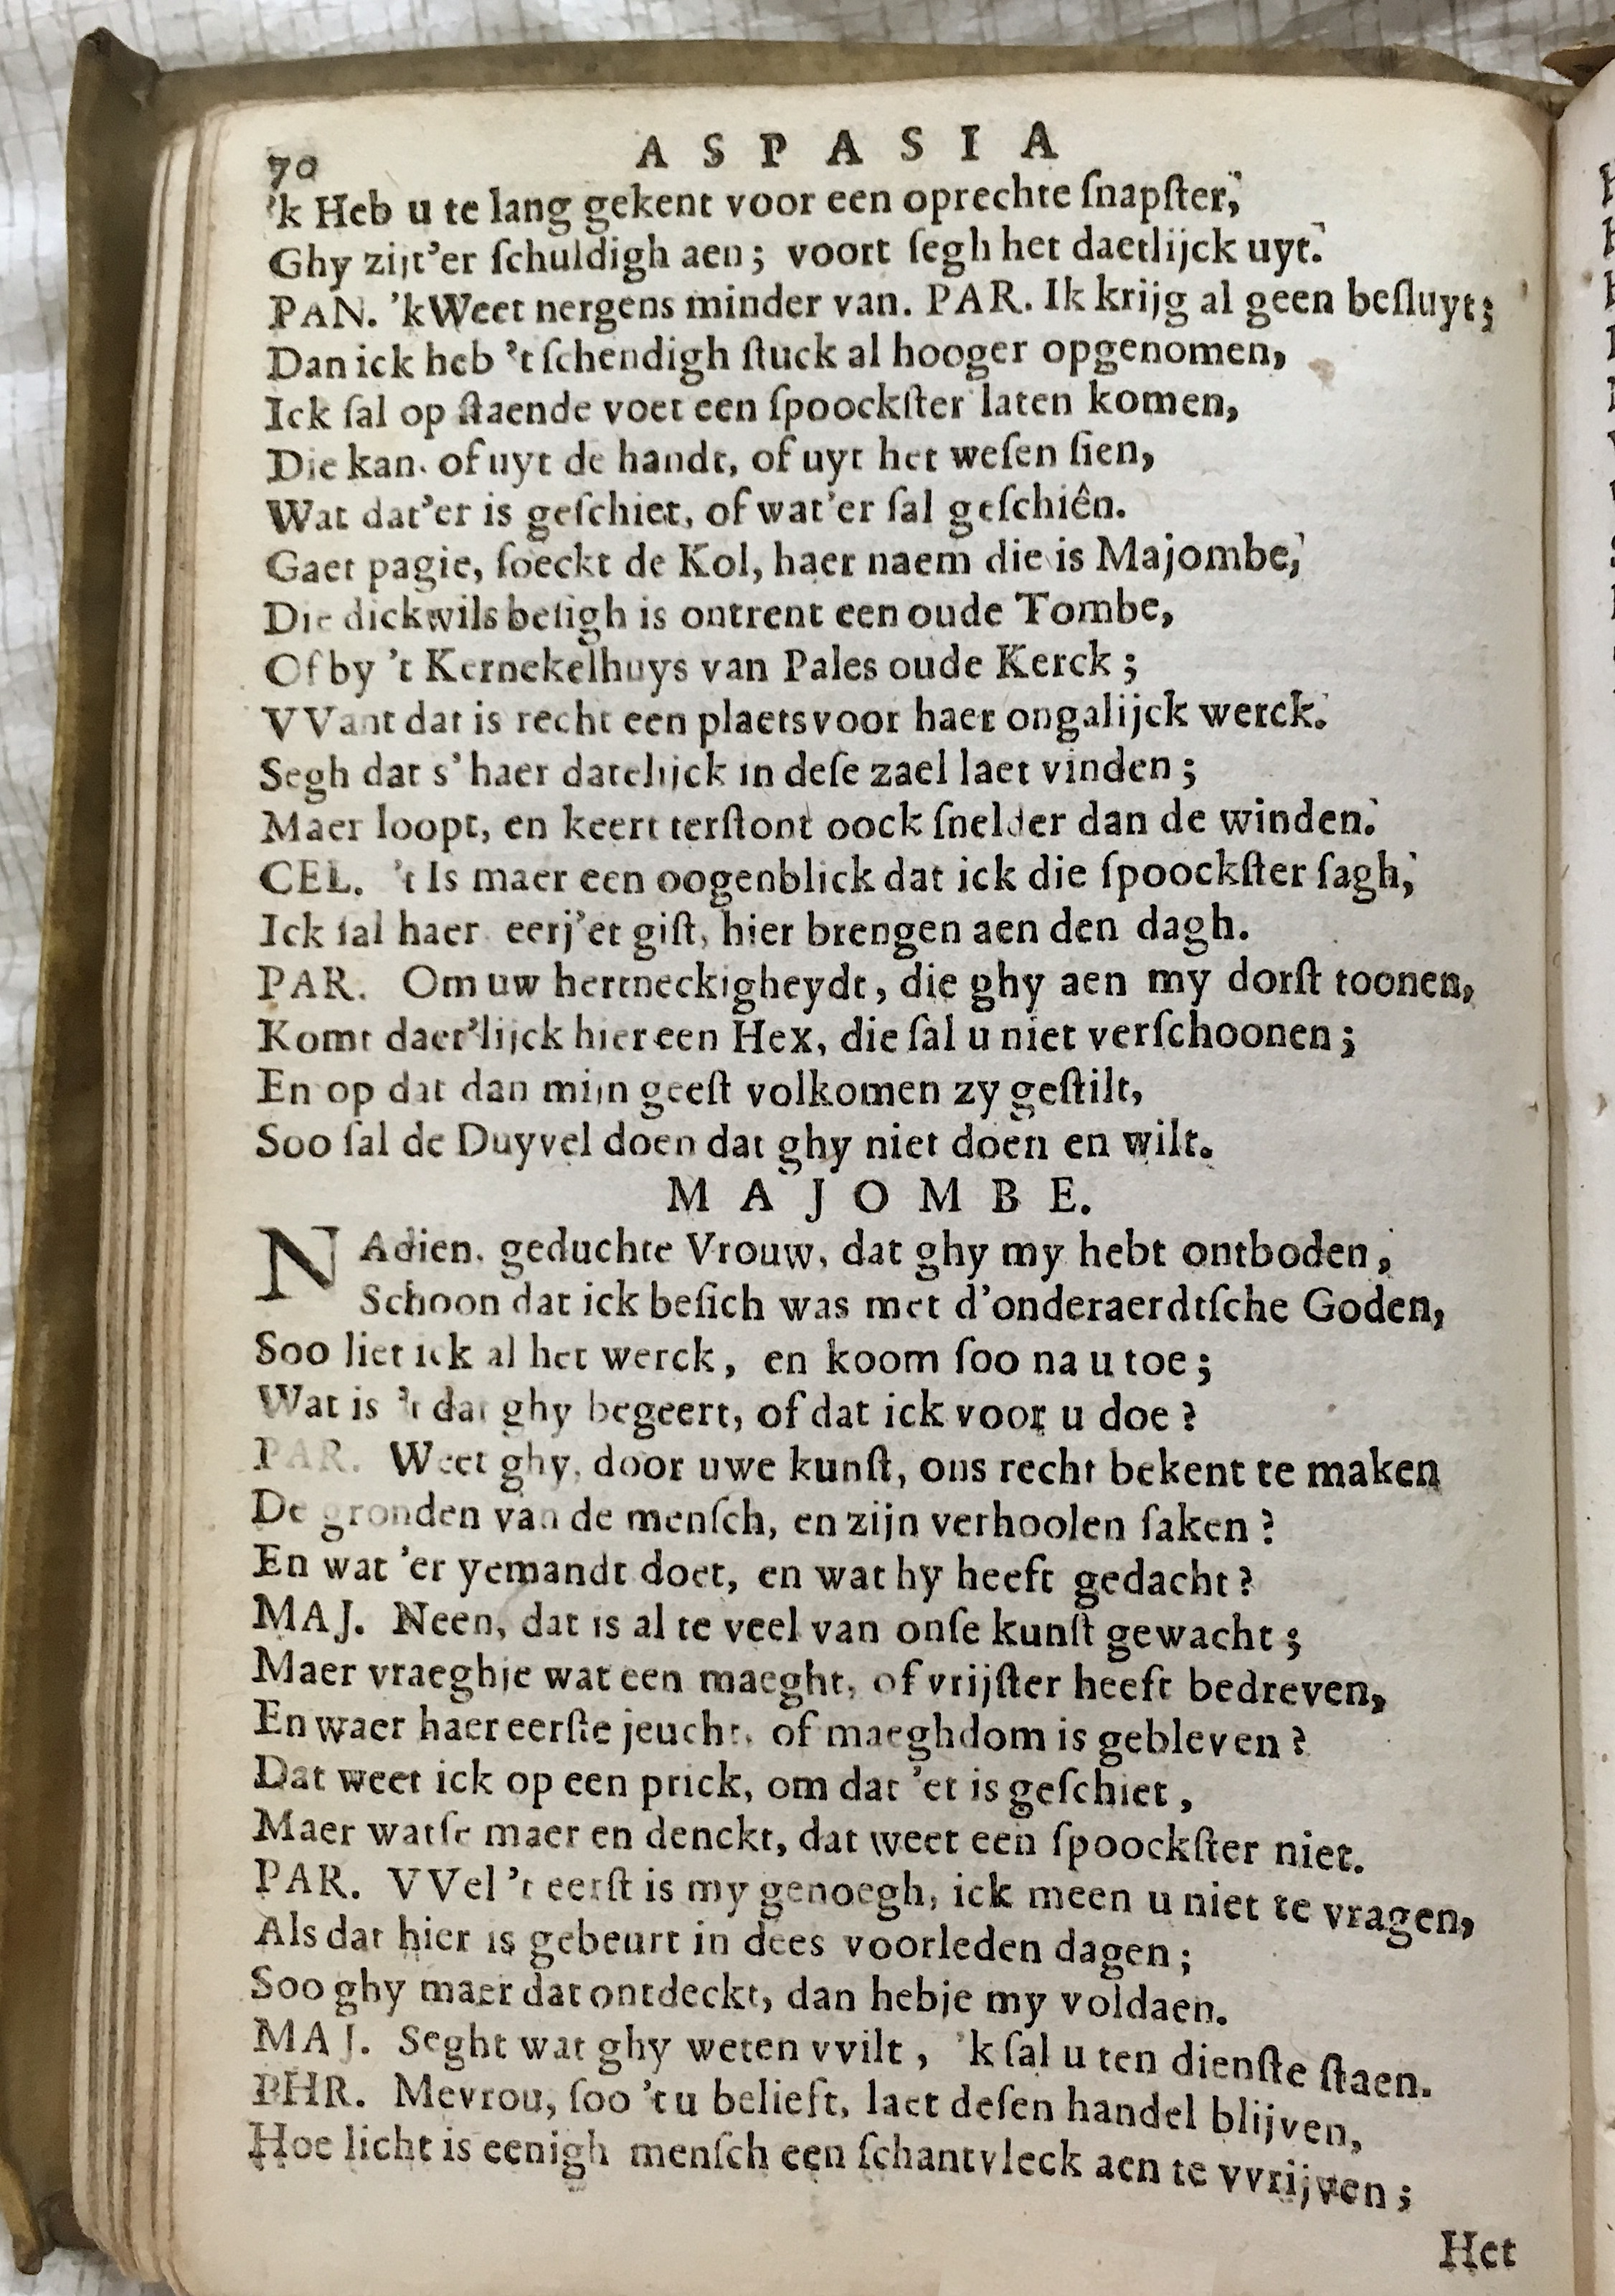 70 ASPASIA
'k Heb u te lang gekent voor een oprechte ſnapſter,
Ghy zijt'er ſchuldigh aen; voort ſegh het daetlijck uyt.
PAN. 'k Weet nergens minder van. PAR. Ik krijg al geen beſluyt;
Dan ick heb 't ſchendigh ſtuck al hooger opgenomen,
Ick ſal op ſtaende voet een ſpoockſter laten komen,
Die kan. of uyt de handt, of uyt het weſen ſien,
Wat dat'er is geſchiet, of wat'er ſal geſchiên.
Gaet pagie, ſoeckt de Kol, haer naem die is Majombe,
Die dickwils beſigh is ontrent een oude Tombe,
Of by 't Kernekelhuys van Pales oude Kerck;
VVant dat is recht een plaets voor haer ongalijck werck.
Segh dat s'haer datelijck in deſe zael laet vinden;
Maer loopt, en keert terſtont oock ſnelder dan de winden.
CEL. 't Is maer een oogenblick dat ick die ſpoockſter ſagh,
Ick ſal haer eerj'et giſt, hier brengen aen den dagh.
PAR. Om uw hertneckigheydt, die ghy aen my dorſt toonen,
Komt daet'lijck hier een Hex, die ſal u niet verſchoonen;
En op dat dan mijn geeſt volkomen zy geſtilt,
Soo ſal de Duyvel doen dat ghy niet doen en wilt.
MAJOMBE.
NAdien. geduchte Vrouw, dat ghy my hebt ontboden,
Schoon dat ick beſich was met d'onderaerdtſche Goden,
Soo liet ick al het werck, en koom ſoo na u toe;
Wat is 't dat ghy begeert, of dat ick voor u doe?
PAR. Weet ghy, door uwe kunſt, ons recht bekent te maken
De gronden van de menſch, en zijn verhoolen ſaken?
En wat 'er yemandt doet, en wat hy heeft gedacht?
MAJ. Neen, dat is al te veel van onſe kunſt gewacht;
Maer vraeghje wat een maeght, of vrijſter heeft bedreven,
En waer haer eerſte jeucht, of maeghdom is gebleven?
Dat weet ick op een prick, om dat 'et is geſchiet,
Maer watſe maer en denckt, dat weet een ſpoockſter niet.
PAR. VVel 't eerſt is my genoegh, ick meen u niet te vragen,
Als dat hier is gebeurt in dees voorleden dagen;
Soo ghy maer dat ontdeckt, dan hebje my voldaen.
MAJ. Seght wat ghy weten vvilt, 'k ſal u ten dienſte ſtaen.
PHR. Mevrou, ſoo 't u belieft, laet deſen handel blijven,
Hoe licht is eenigh menſch een ſchantvleck aen te vvrijven;
Het